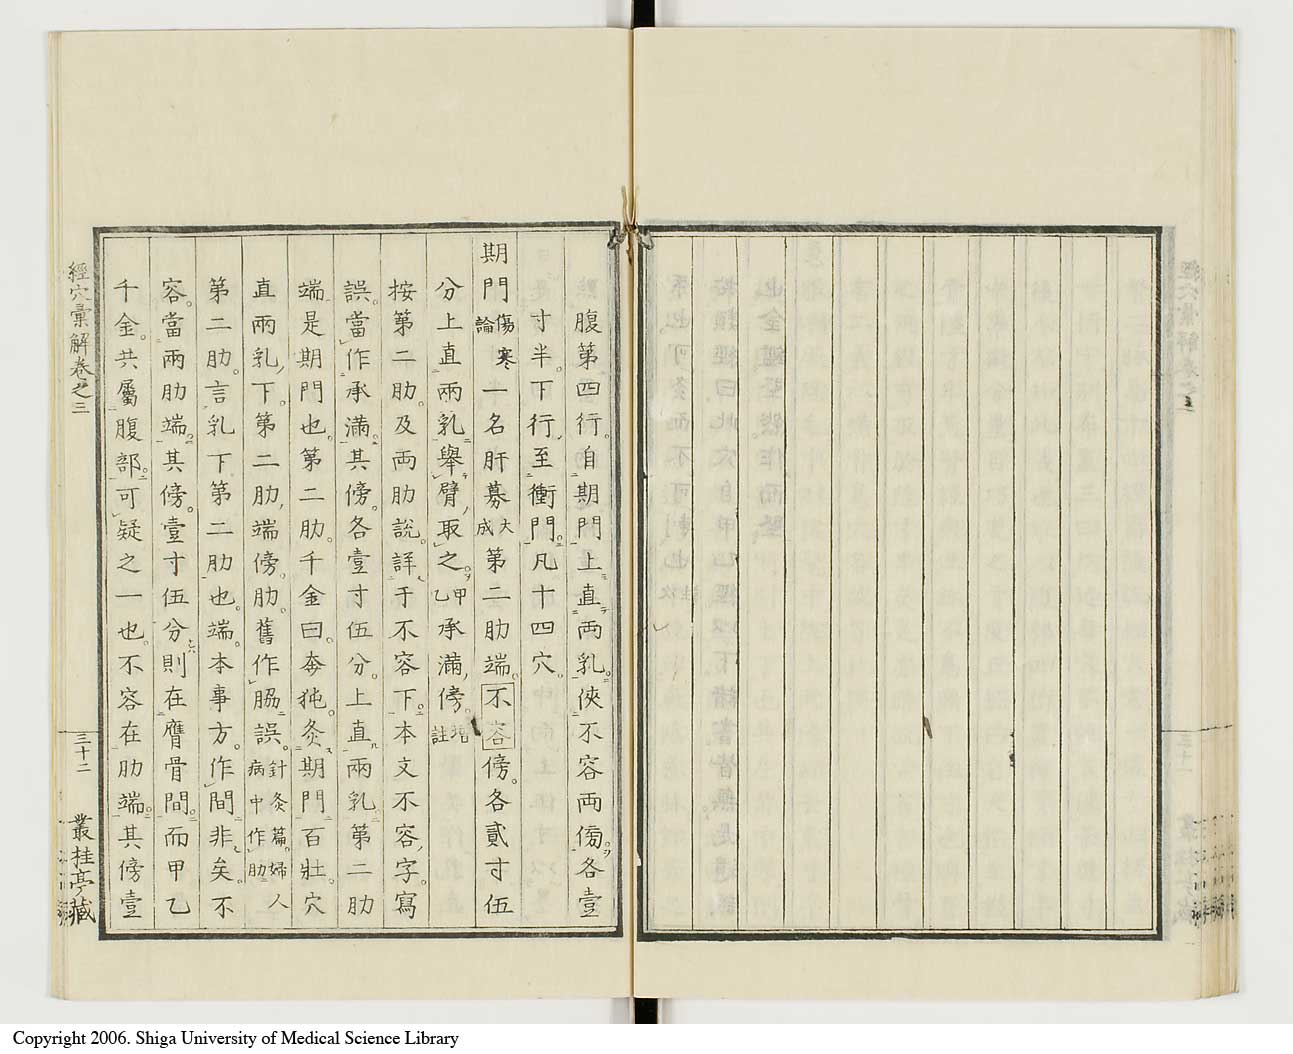 腹第四行。自期門上直兩乳。俠不容兩傍。各壹
寸半。下行至衝門。凡十四穴。
期門傷寒論一名肝募大成第二肋端。不容傍。各貳寸伍
分上直兩乳。舉臂取之。甲乙承滿傍。註
按第二肋。及兩肋說。詳于不容下。本文不容字寫
誤。當作承滿。其傍各壹寸伍分。上直兩乳第二肋
端。是期門也。第二肋。千金曰。奔㹠。灸期門百壯。穴
直兩乳下。第二肋端傍肋。舊作脇誤。針灸篇。婦人病中作肋
第二肋。言乳下第二肋也。端。本事方。作間非矣。不
容。當兩肋端。其傍。壹寸伍分。則在膺骨間。而甲乙
千金。共屬腹部。可疑之一也。不容在肋端。其傍壹
經穴彙解卷之三
三十二
叢桂亭藏
Copyright 2006. Shiga University of Medical Science Library